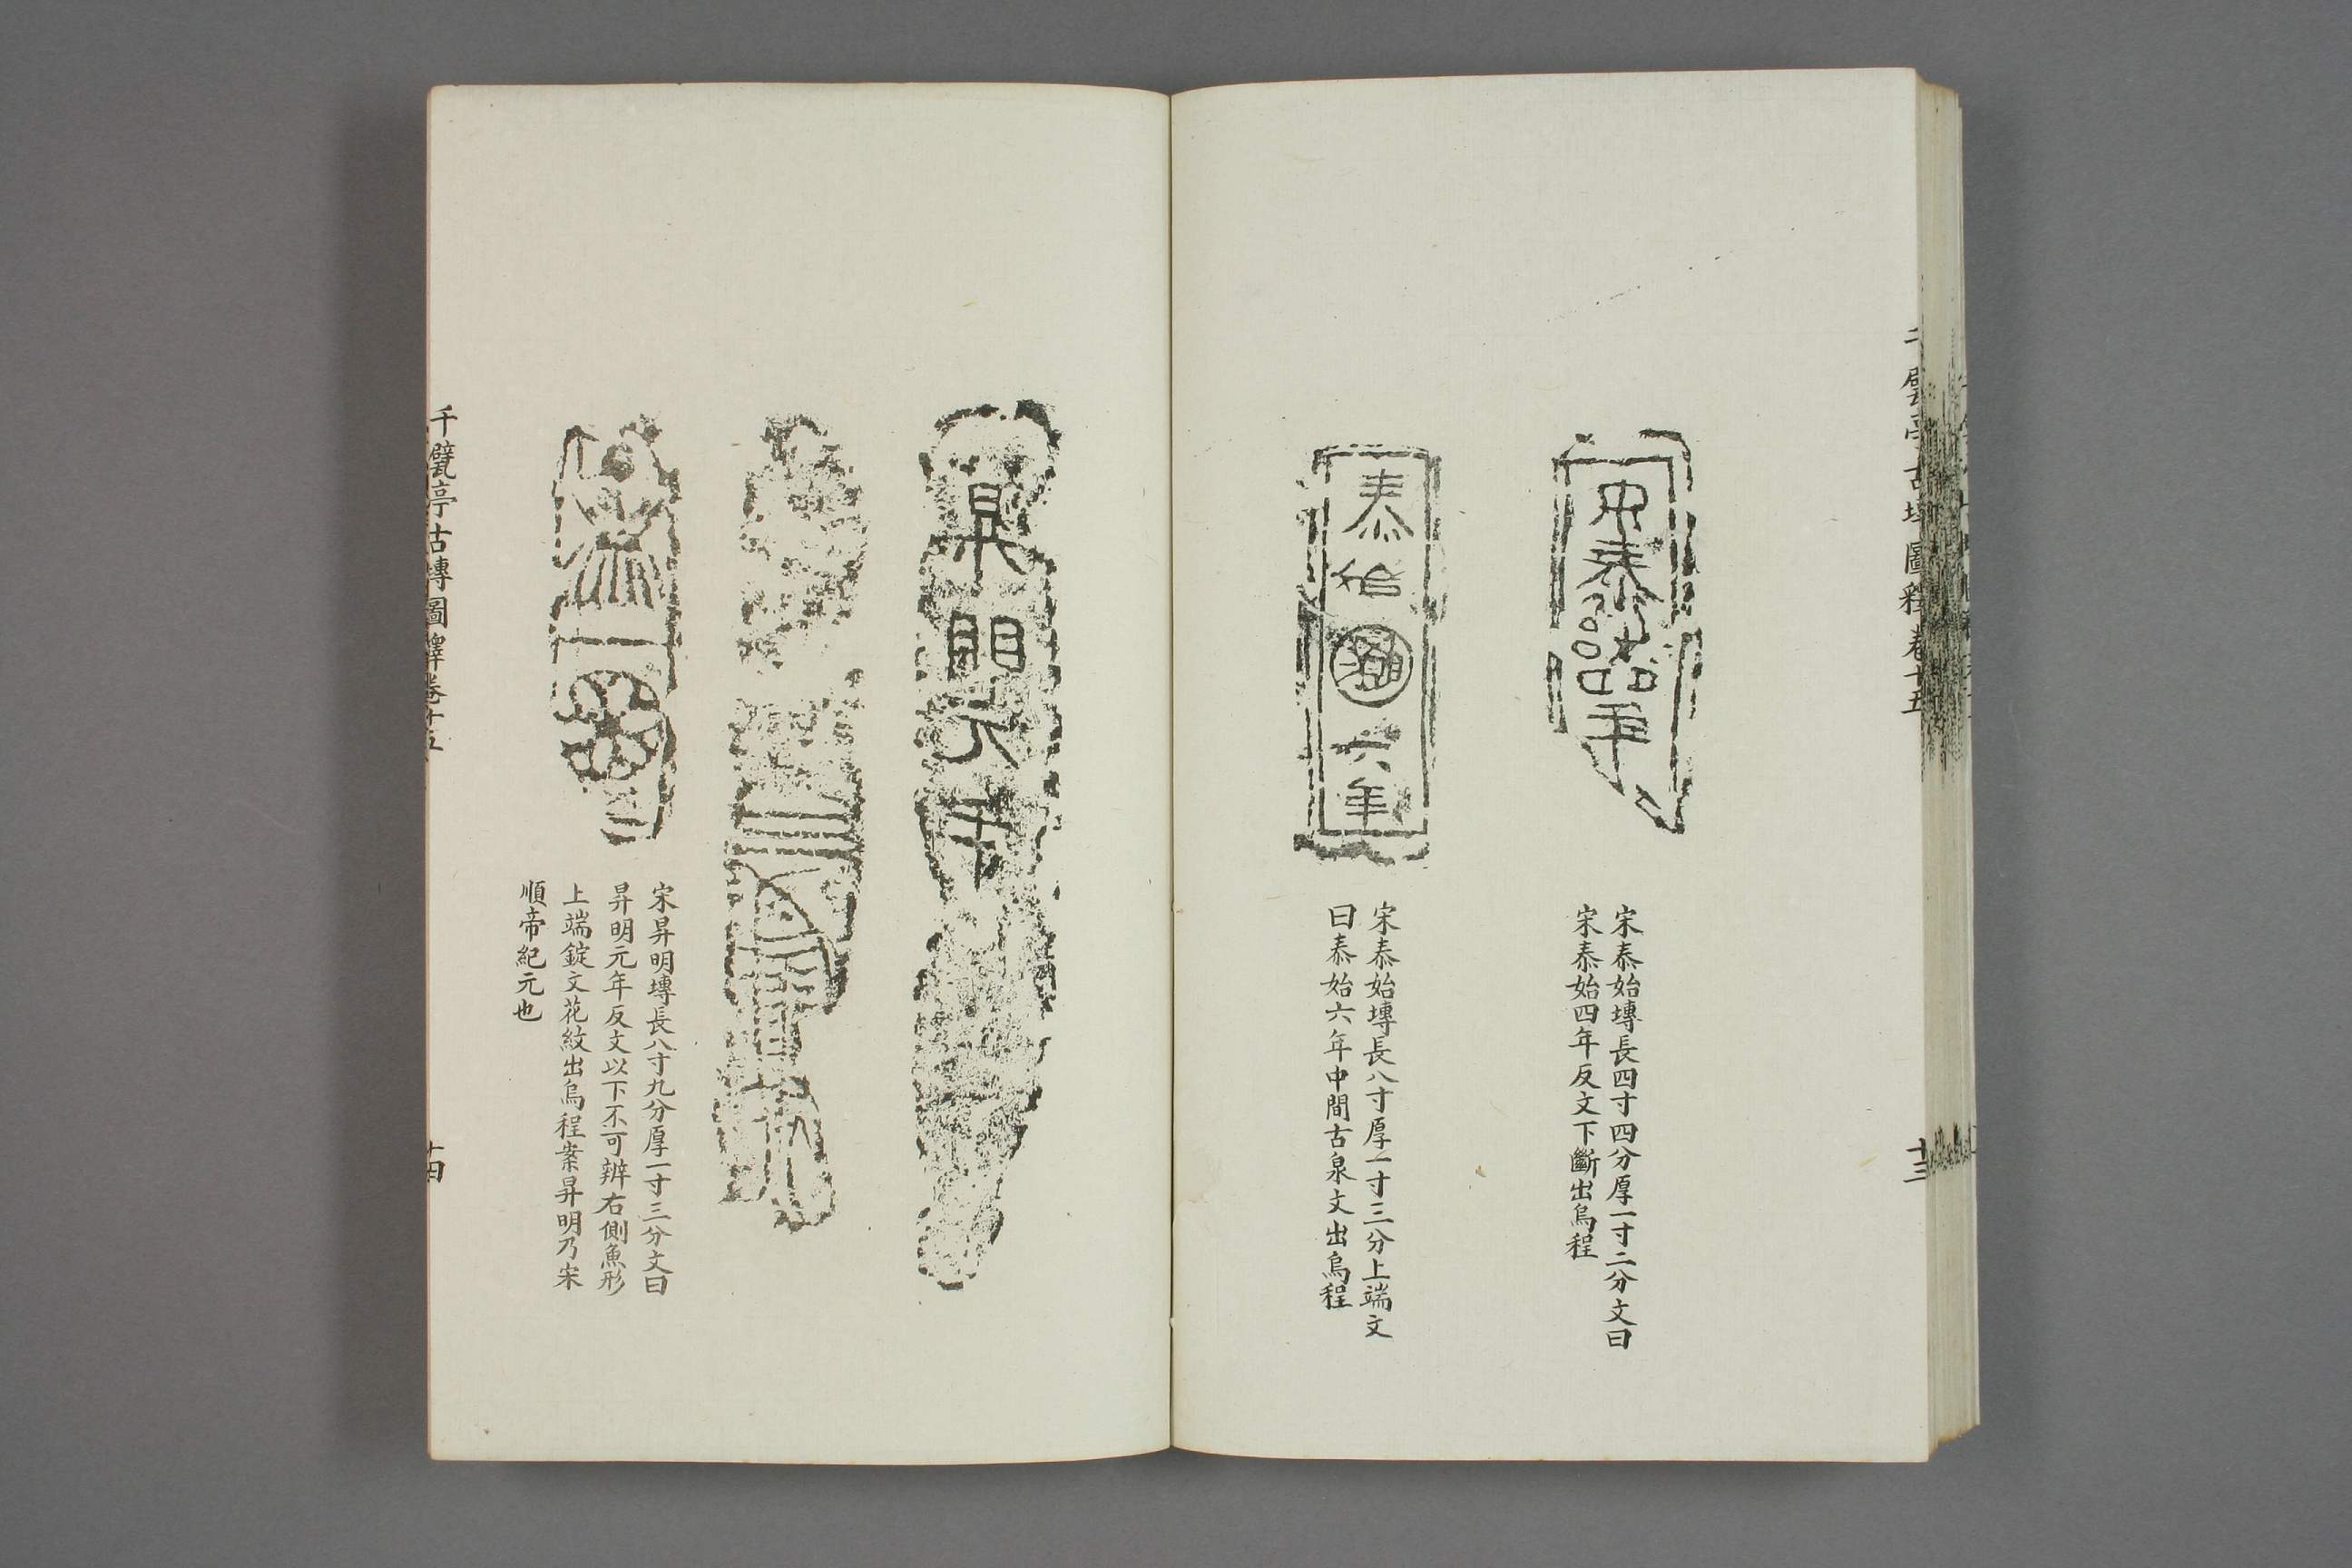 千甓亭古塼圖釋卷十五
十三
宋泰始塼長四寸四分厚一寸二分文曰
宋泰始四年反文下斷出烏程
泰始六年
宋泰始塼長八寸厚一寸三分上端文
曰泰始六年中間古泉文出烏程
昇明元年
宋昇明塼長八寸九分厚一寸三分文曰
昇明元年反文以下不可辨右側魚形
上端錠文花紋出烏程案昇明乃宋
順帝紀元也
千甓亭古塼圖釋卷十五
十四